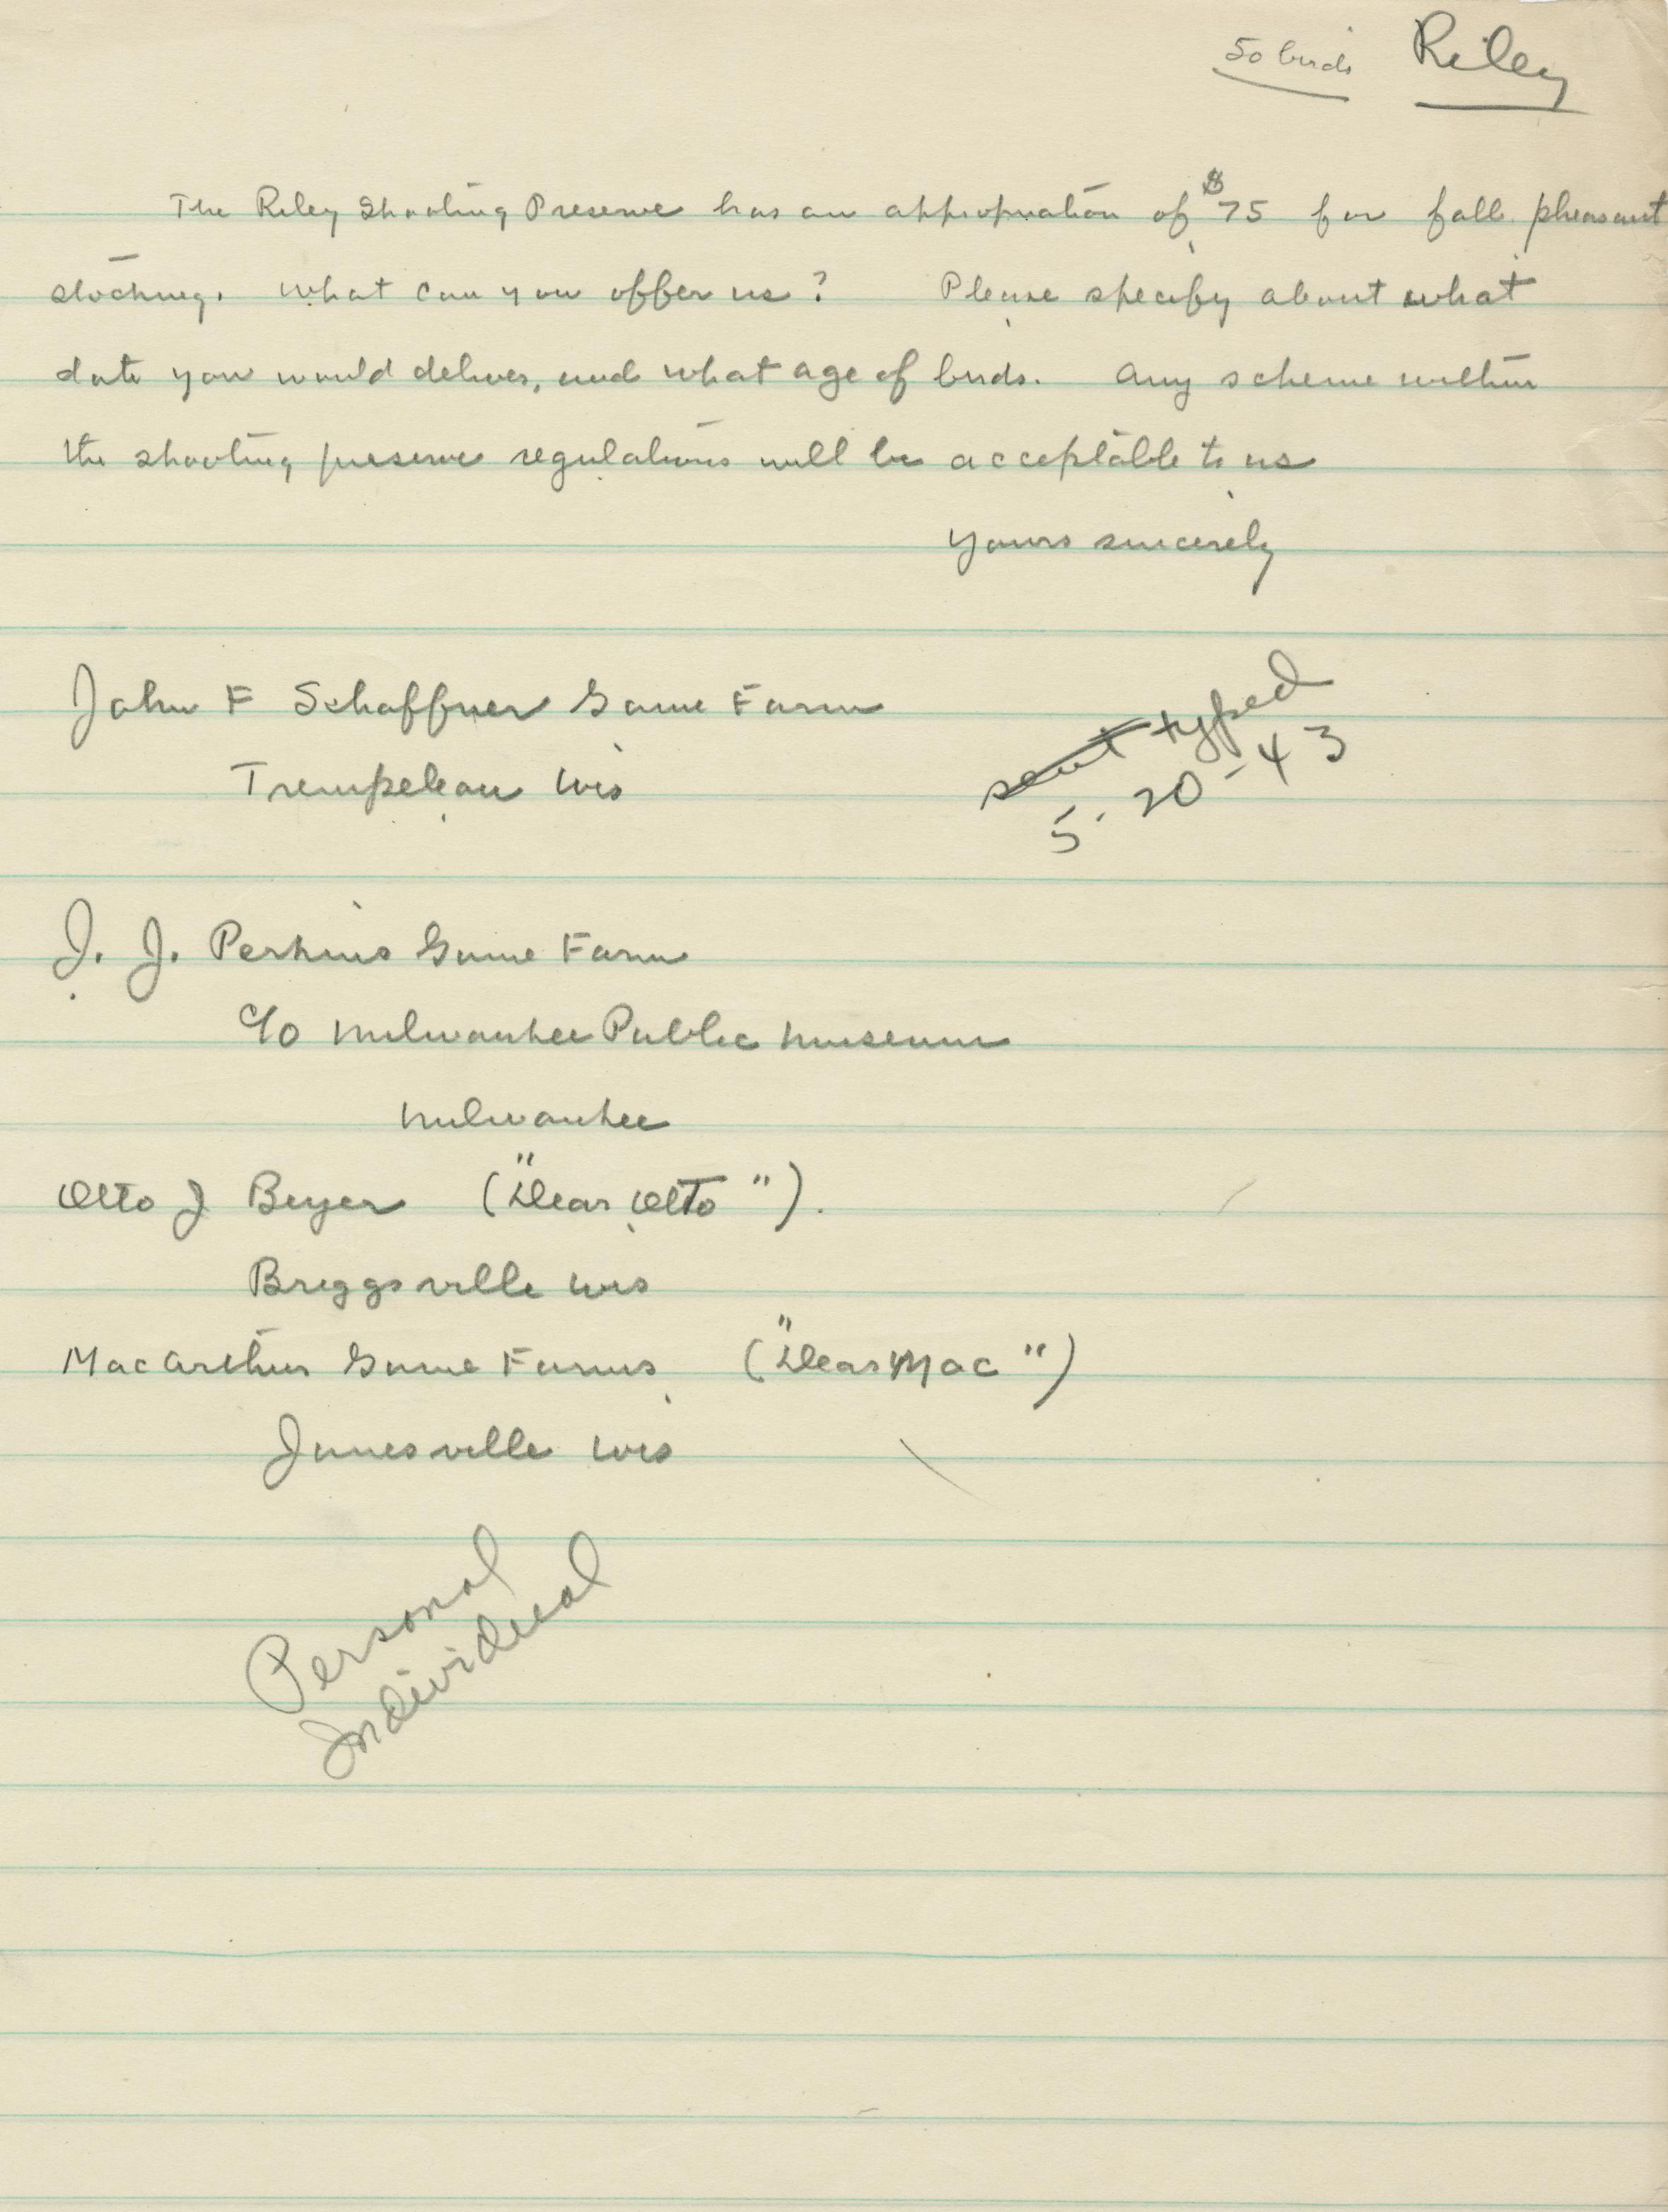 50 birds Riley
The Riley Shooting Preserve has an appropriation of $75 for fall pheasant
stocking. What can you offer us? Please specify about what
date you would deliver, and what age of birds. Any scheme within
the shooting preserve regulations will be acceptable to us
Yours sincerely
John F Schaffner Game Farm
Trempeleau Wis
sent typed
5-20-43
J. J. Perkins Game Farm
c/o Milwaukee Public Museum
Milwaukee
Otto J Beyer ("Dear Otto").
Briggsville Wis
MacArthur Game Farms ("Dear Mac")
Janesville Wis
Personal
Individual